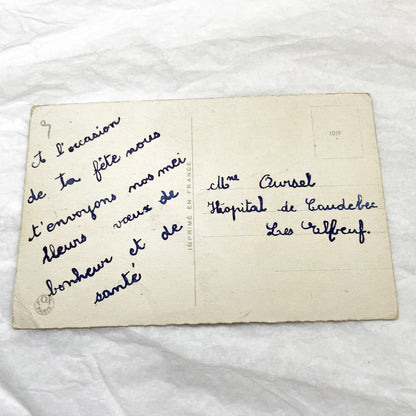 A l'occasion
de ta fête nous
t'envoyons nos mei
lleurs vœux de
bonheur et de
santé
IMPRIMÉ EN FRANCE
1019
Mme Oursel
Hôpital de Caudebec
Les Elbeuf.